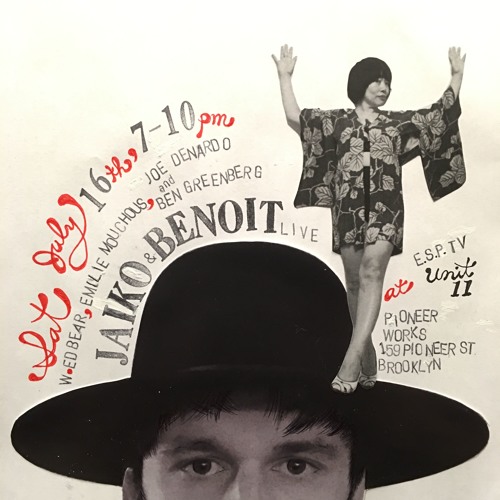 Sat July 16th, 7-10 pm
W. ED BEAR, EMILIE MOUCHOUS, JOE DENARDO
and
BEN GREENBERG
JAIKO & BENOIT LIVE
at E.S.P. TV
Unit
11
PIONEER
WORKS
159 PIONEER ST
BROOKLYN